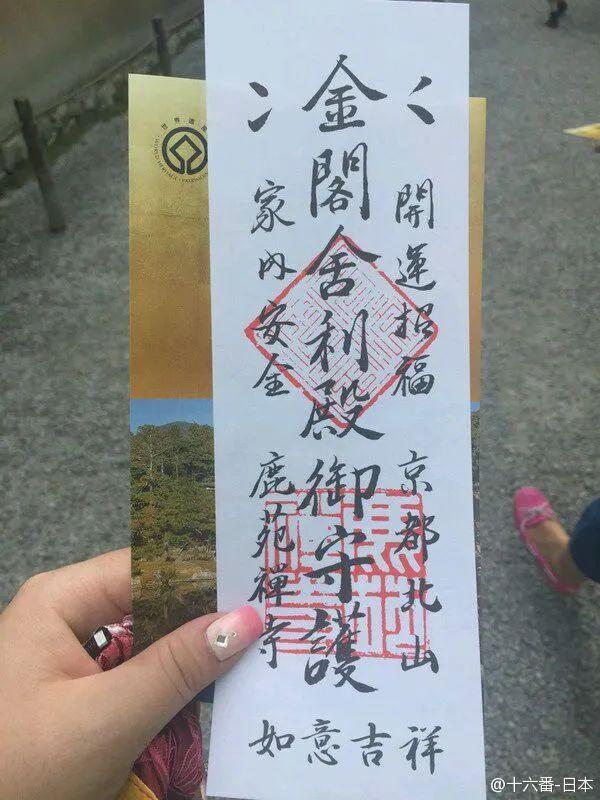 開運招福 京都北山
金閣舍利殿御守護
家内安全 鹿苑禅寺
如意吉祥
世界遺産
WORLD HERITAGE • PATRIMOINE
@十六番-日本